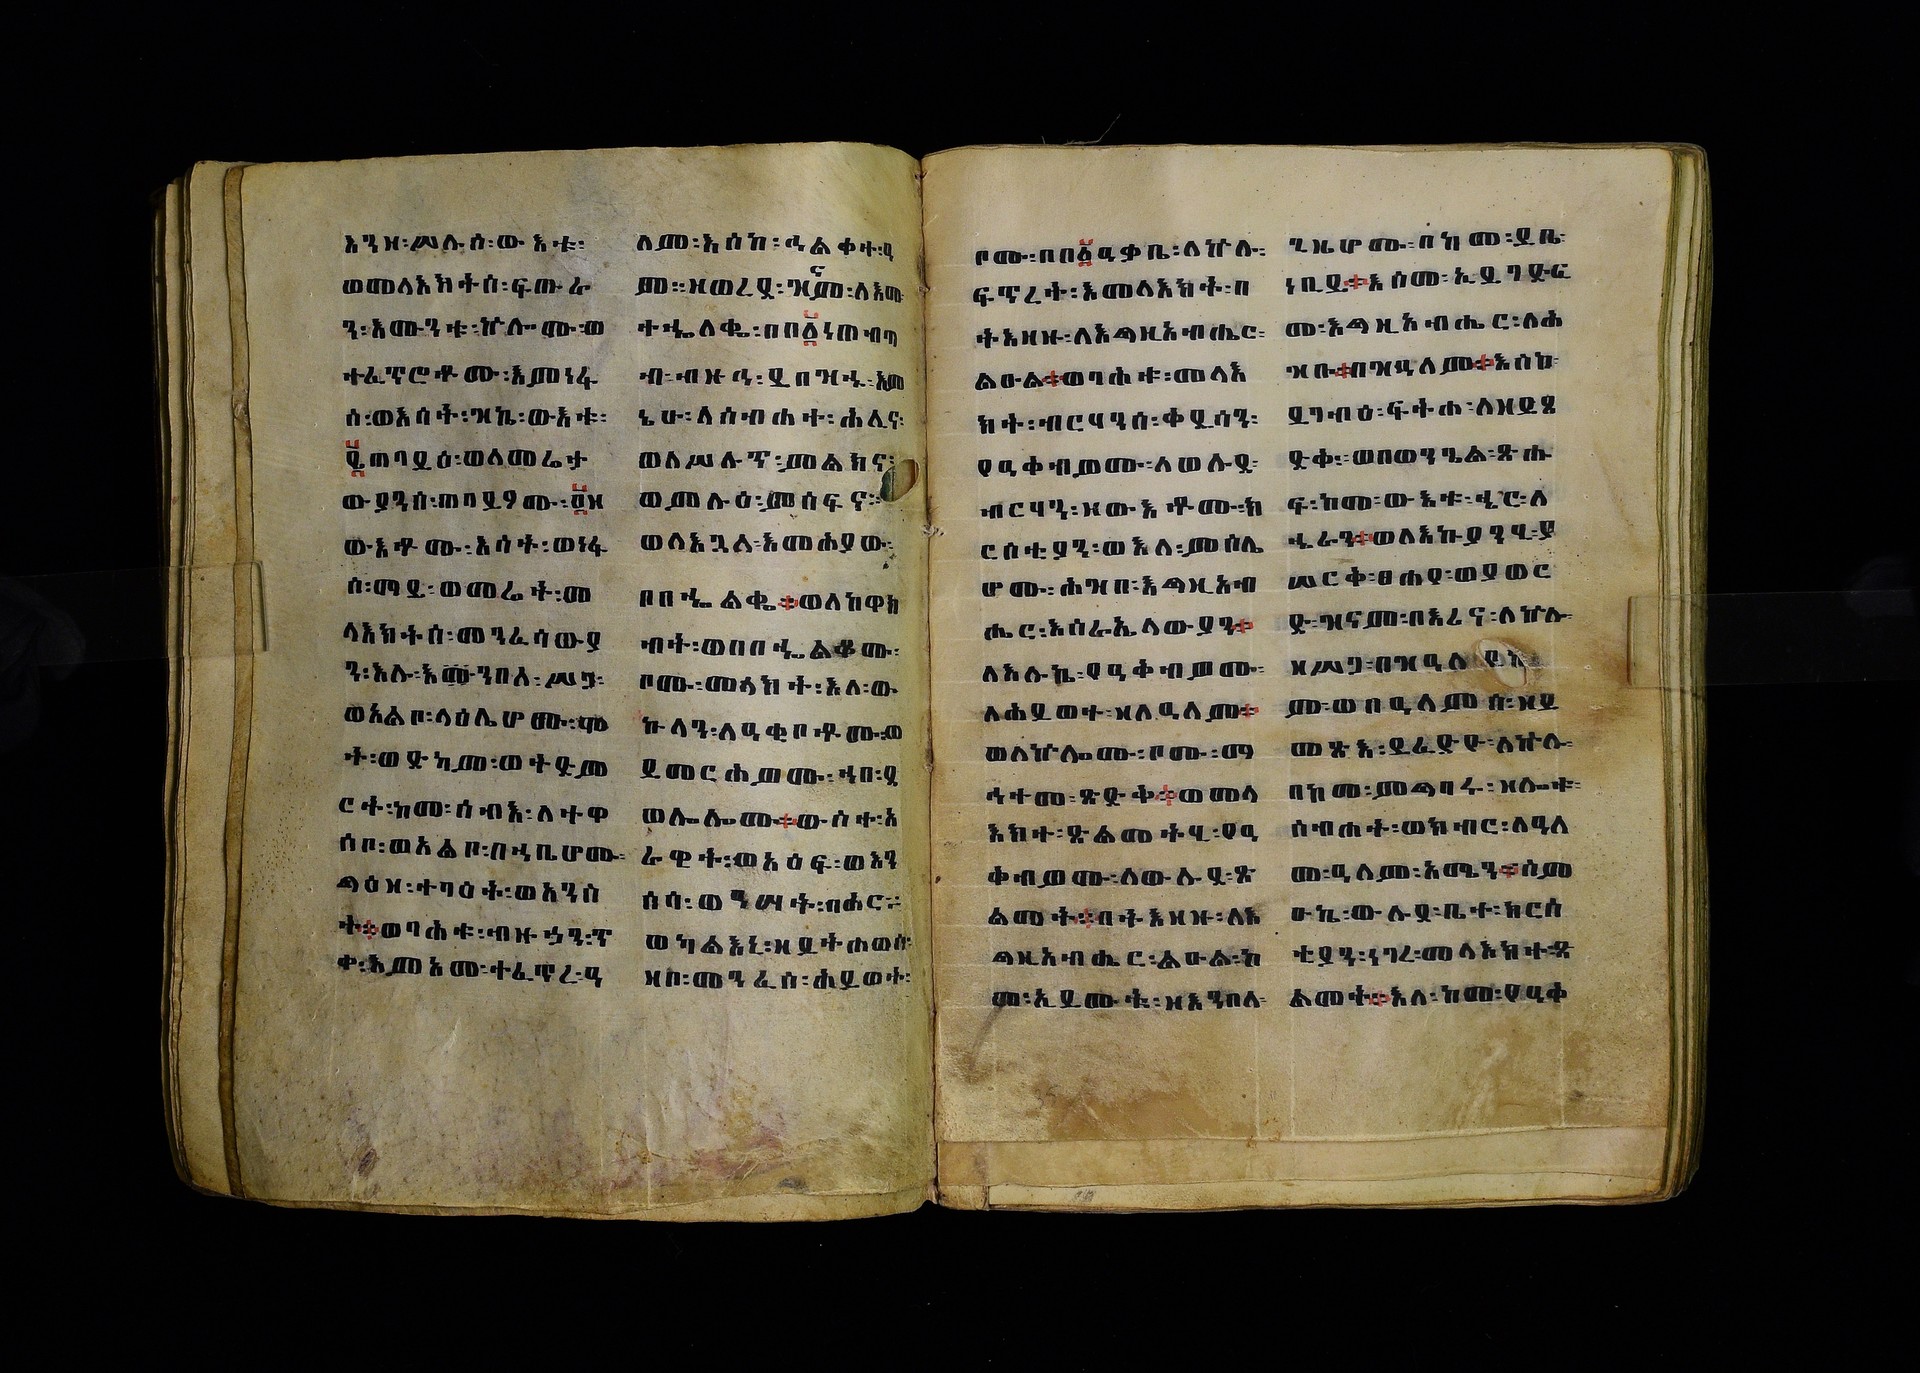 እንዘ፡ሥሉስ፡ውእቱ፡
ወመላእክትሰ፡ፍጡራ
ን፡እሙንቱ፡ኵሎሙ፡ወ
ተፈጥሮቶሙ፡እምነፋ
ስ፡ወእሳት፡ዝኬ፡ውእቱ፡
፪ጠባይዕ፡ወለመሬታ
ውያንሰ፡ጠባይዓሙ፡፬ዘ
ውእቶሙ፡እሳት፡ወነፋ
ስ፡ማይ፡ወመሬት፡መ
ላእክትሰ፡መንፈሳውያ
ን፡እሉ፡እሙንበለ፡ሥጋ፡
ወአልቦ፡ላዕሌሆሙ፡ሞ
ት፡ወድካም፡ወትድም
ርት፡ከመ፡ሰብእ፡ለተዋ
ስቦ፡ወአልቦ፡በኀቤሆሙ፡
ጫዕዘ፡ተባዕት፡ወአንስ
ት፨ወባሕቱ፡ብዙኃን፡ጥ
ቀ፡እምአመ፡ተፈጥረ፡ዓ
ለም፡እስከ፡ኅልቀተ፡ዓ
ም፡፡ዘወረደ፡ዝናም፡ለእመ
ተኈለቈ፡በበ፩ነጠብጣ
ብ፡ብዙኅ፡ይበዝኁ፡እም
ኔሁ፡ለስብሐተ፡ሕሊና፡
ወለሥሉጥ፡መልክና፡
ወምሉዕ፡መስፍና፡
ወለእጓለ፡እመሕያው፡
ቦበኈልቈ፨ወለከዋክ
ብት፡ወበበኈልቆሙ፡
ቦሙ፡መላክት፡እለ፡ው
ኩላን፡ለዓቂቦቶሙ፡ወ
ይመርሐወሙ፡ኀበ፡ይ
ወሎሎሙ፨ውስተ፡አ
ራዊት፡ወአዕፍ፡ወእን
ስሳ፡ወዓሣት፡ባሕር፡
ወካልእኒ፡ዘይትሐወስ፡
ዘቦ፡መንፈስ፡ሕይወት፡
ቦሙ፡በበ፩ዓቃቤ፡ለኵሉ፡
ፍጥረት፡እመላእክት፡በ
ትእዛዙ፡ለእግዚአብሔር፡
ልዑል፨ወባሕቱ፡መላእ
ክት፡ብርሃንሰ፡ቀዪሳን፡
የዓቀብዎሙ፡ለወሉደ፡
ብርሃን፡ዘውእቶሙ፡ክ
ርስቲያን፡ወእለ፡መሰሌ
ሆሙ፡ሕዝበ፡እግዚአብ
ሔር፡እስራኤላውያን፨
ለእሉ፡ኬ፡የዓቀብዎሙ፡
ለሕይወተ፡ዘለዓለም፨
ወለኵሎሙ፡ቦሙ፡ማ
ኅተመ፡ጽድቅ፨ወመላ
እክተ፡ጽልመትሂ፡የዓ
ቀብዎሙ፡ለውሉደ፡ጽ
ልመት፨በትእዛዙ፡ለእ
ግዚአብሔር፡ልዑል፡ከ
መ፡ኢይሙቱ፡ዘእንበለ፡
ጊዜሆሙ፡በከመ፡ይቤ፡
ነቢይ፨እስመ፡ኢይገድፍ
መ፡እግዚአብሔር፡ለሕ
ዝቡ፨በዝዓለም፨እስከ፡
ይገብዕ፡ፍትሐ፡ለዘይጼ
ድቅ፡ወበወንጌል፡ጽሑ
ፍ፡ከመ፡ውእቱ፡ኂር፡ለ
ኂራን፨ወለእኩያንሂ፡ያ
ሠርቅ፡ፀሐየ፡ወያወር
ድ፡ዝናመ፡በእሪና፡ለኵሉ፡
ዘሥጋ፡በዝዓለ
ም፡ወበዓለምሰ፡ዘይ
መጽእ፡ይፈድዮ፡ለኵሉ፡
በከመ፡ምግባሩ፡ዘሎቱ፡
ስብሐት፡ወክብር፡ለዓለ
መ፡ዓለም፡አሜን፨ስም
ዑኬ፡ውሉደ፡ቤተ፡ክርስ
ቲያን፡ነገረ፡መላእክተ፡ጽ
ልመት፨እለ፡ከመ፡የዓቀ